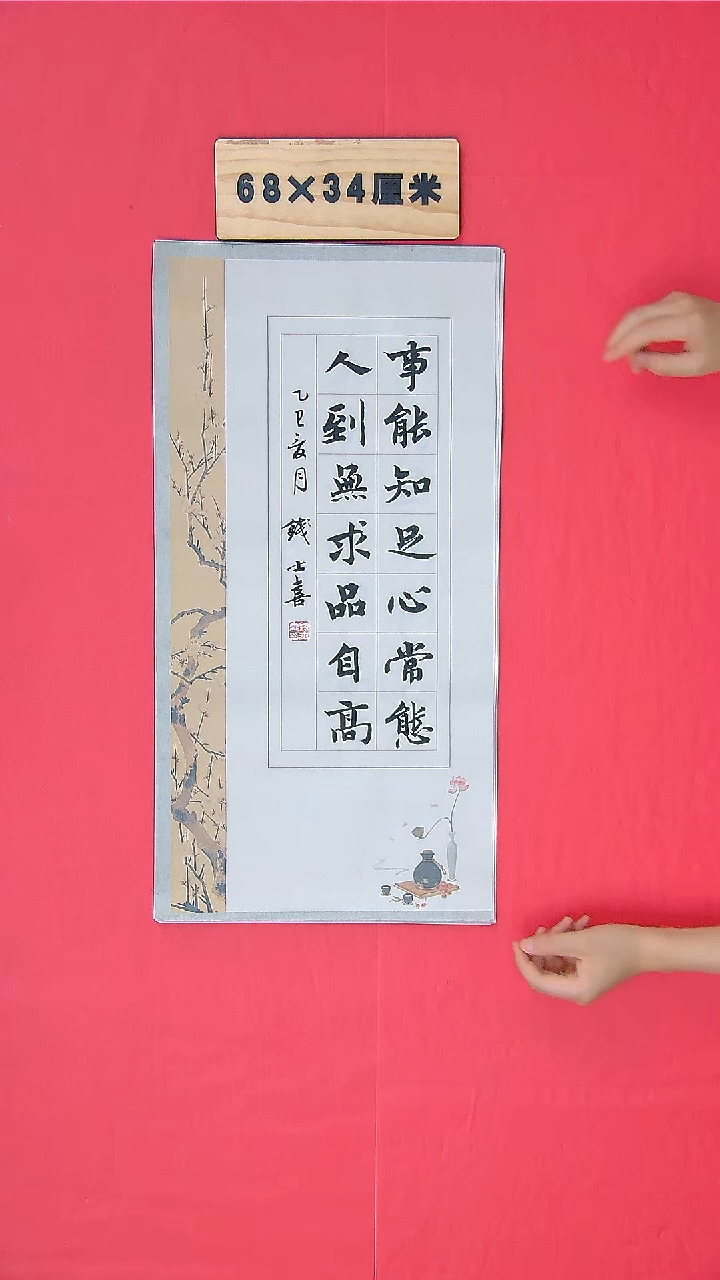 68×34厘米
事能知足心常態
人到無求品自高
乙巳亥月 錢士喜